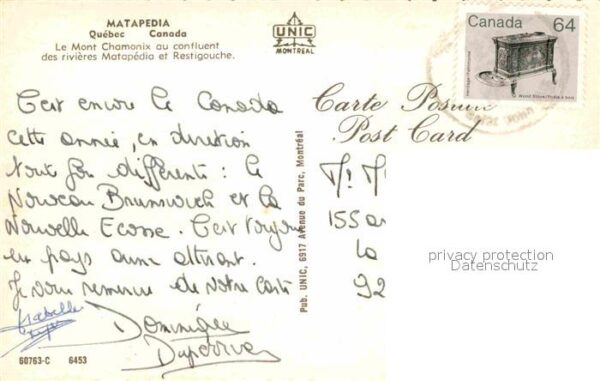 MATAPEDIA
Québec Canada
Le Mont Chamonix au confluent
des rivières Matapédia et Restigouche.
UNIC
MONTRÉAL
Canada 64
Heritage-Patrimoine
Wood Stove/Poêle à bois
C'est encore le Canada
cette année, en direction
tout à fait différente : le
Nouveau Brunswick et la
Nouvelle Ecosse. C'est toujours
un pays aussi attirant.
Je vous remercie de votre carte
Isabelle
Dominique
Duperrive
Carte Postale
Post Card
155
La
92
Pub. UNIC, 6917 Avenue du Parc, Montréal
privacy protection
Datenschutz
60763-C 6453